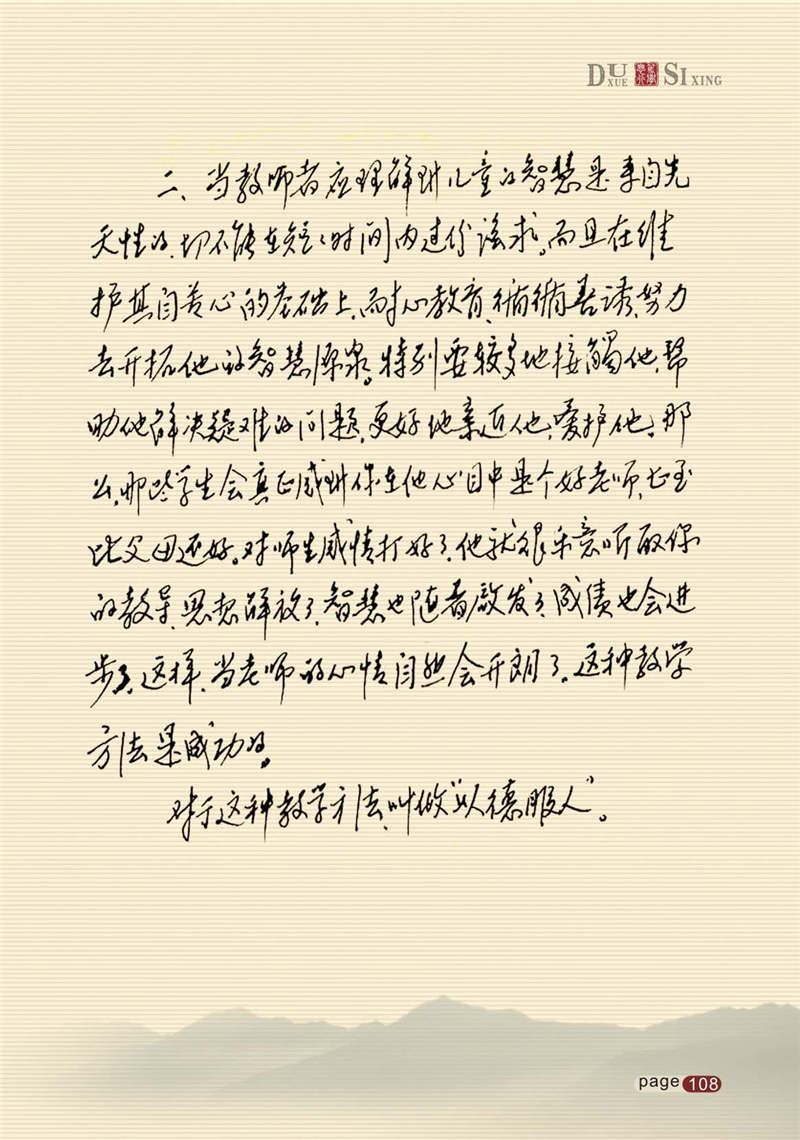 DUXUE SIXING
二、当教师者应理解到儿童的智慧是来自先
天性的,切不能在短短时间内过份谣求。而且在维
护其自尊心的基础上,耐心教育,循循善诱,努力
去开拓他的智慧源泉。特别要较多地接觸他,帮
助他解决疑难的问题,更好地亲近他,爱护他。那
么,那些学生会真正感到你在他心目中是个好老师,甚至
比父母还好。对师生感情打好了,他就很乐意听取你
的教导,思想解放了,智慧也随着啟发了,成绩也会进
步了。这样,当老师的心情自然会开朗了。这种教学
方法是成功的。
对于这种教学方法,叫做“以德服人”。
page 108